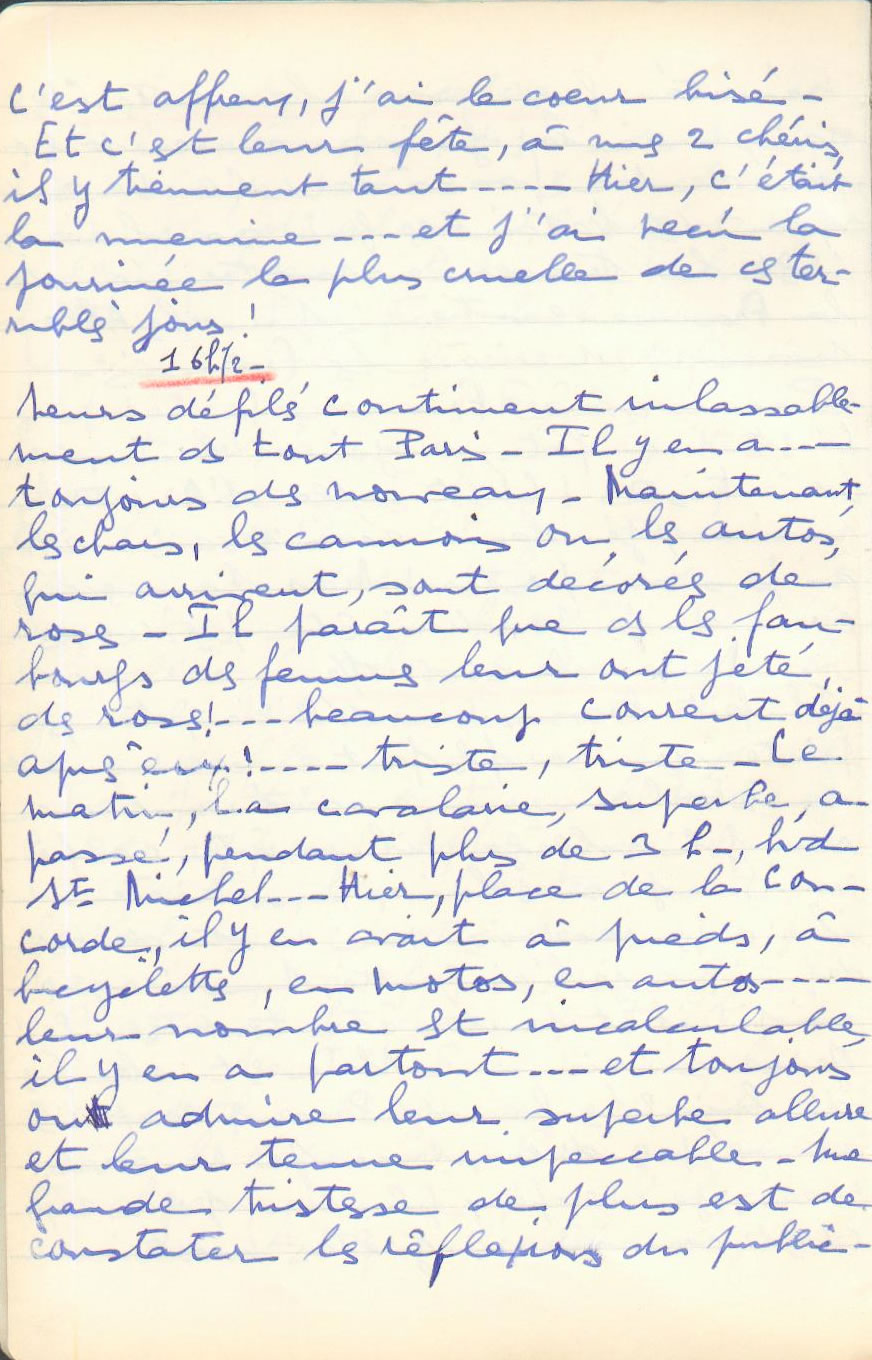 c'est affreux, j'ai le coeur brisé -
Et c'est leur fête, à mes 2 chéris,
ils y tiennent tant ---- Hier, c'était
la mienne --- et j'ai vécu la
journée la plus cruelle de ces ter-
ribles jours !
16h/2 -
Leurs défilés continuent inlassable-
ment ds tout Paris - Il y en a ---
toujours de nouveaux - Maintenant,
les chars, les camions ou les autos,
qui arrivent, sont décorés de
roses - Il paraît que ds les fau-
bourgs des femmes leur ont jeté
des roses ! --- beaucoup courent déjà
après eux ! ---- triste, triste - Ce
matin, la cavalerie, superbe, a
passé, pendant plus de 3 h -, bvd
St Michel --- Hier, place de la Con-
corde, il y en avait à pieds, à
bicyclettes, en motos, en autos ----
leur nombre est incalculable,
il y en a partout --- et toujours
on admire leur superbe allure
et leur tenue impeccable - Une
grande tristesse de plus est de
constater les réflexions du public -